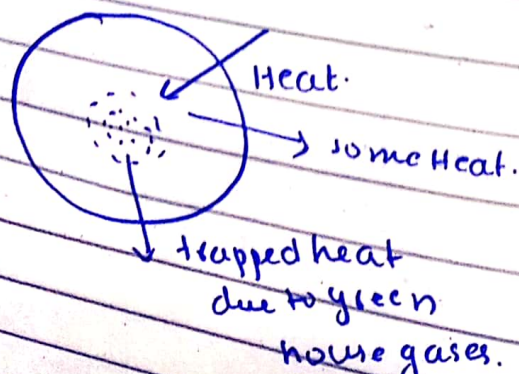 Heat.
some Heat.
trapped heat
due to green
house gases.